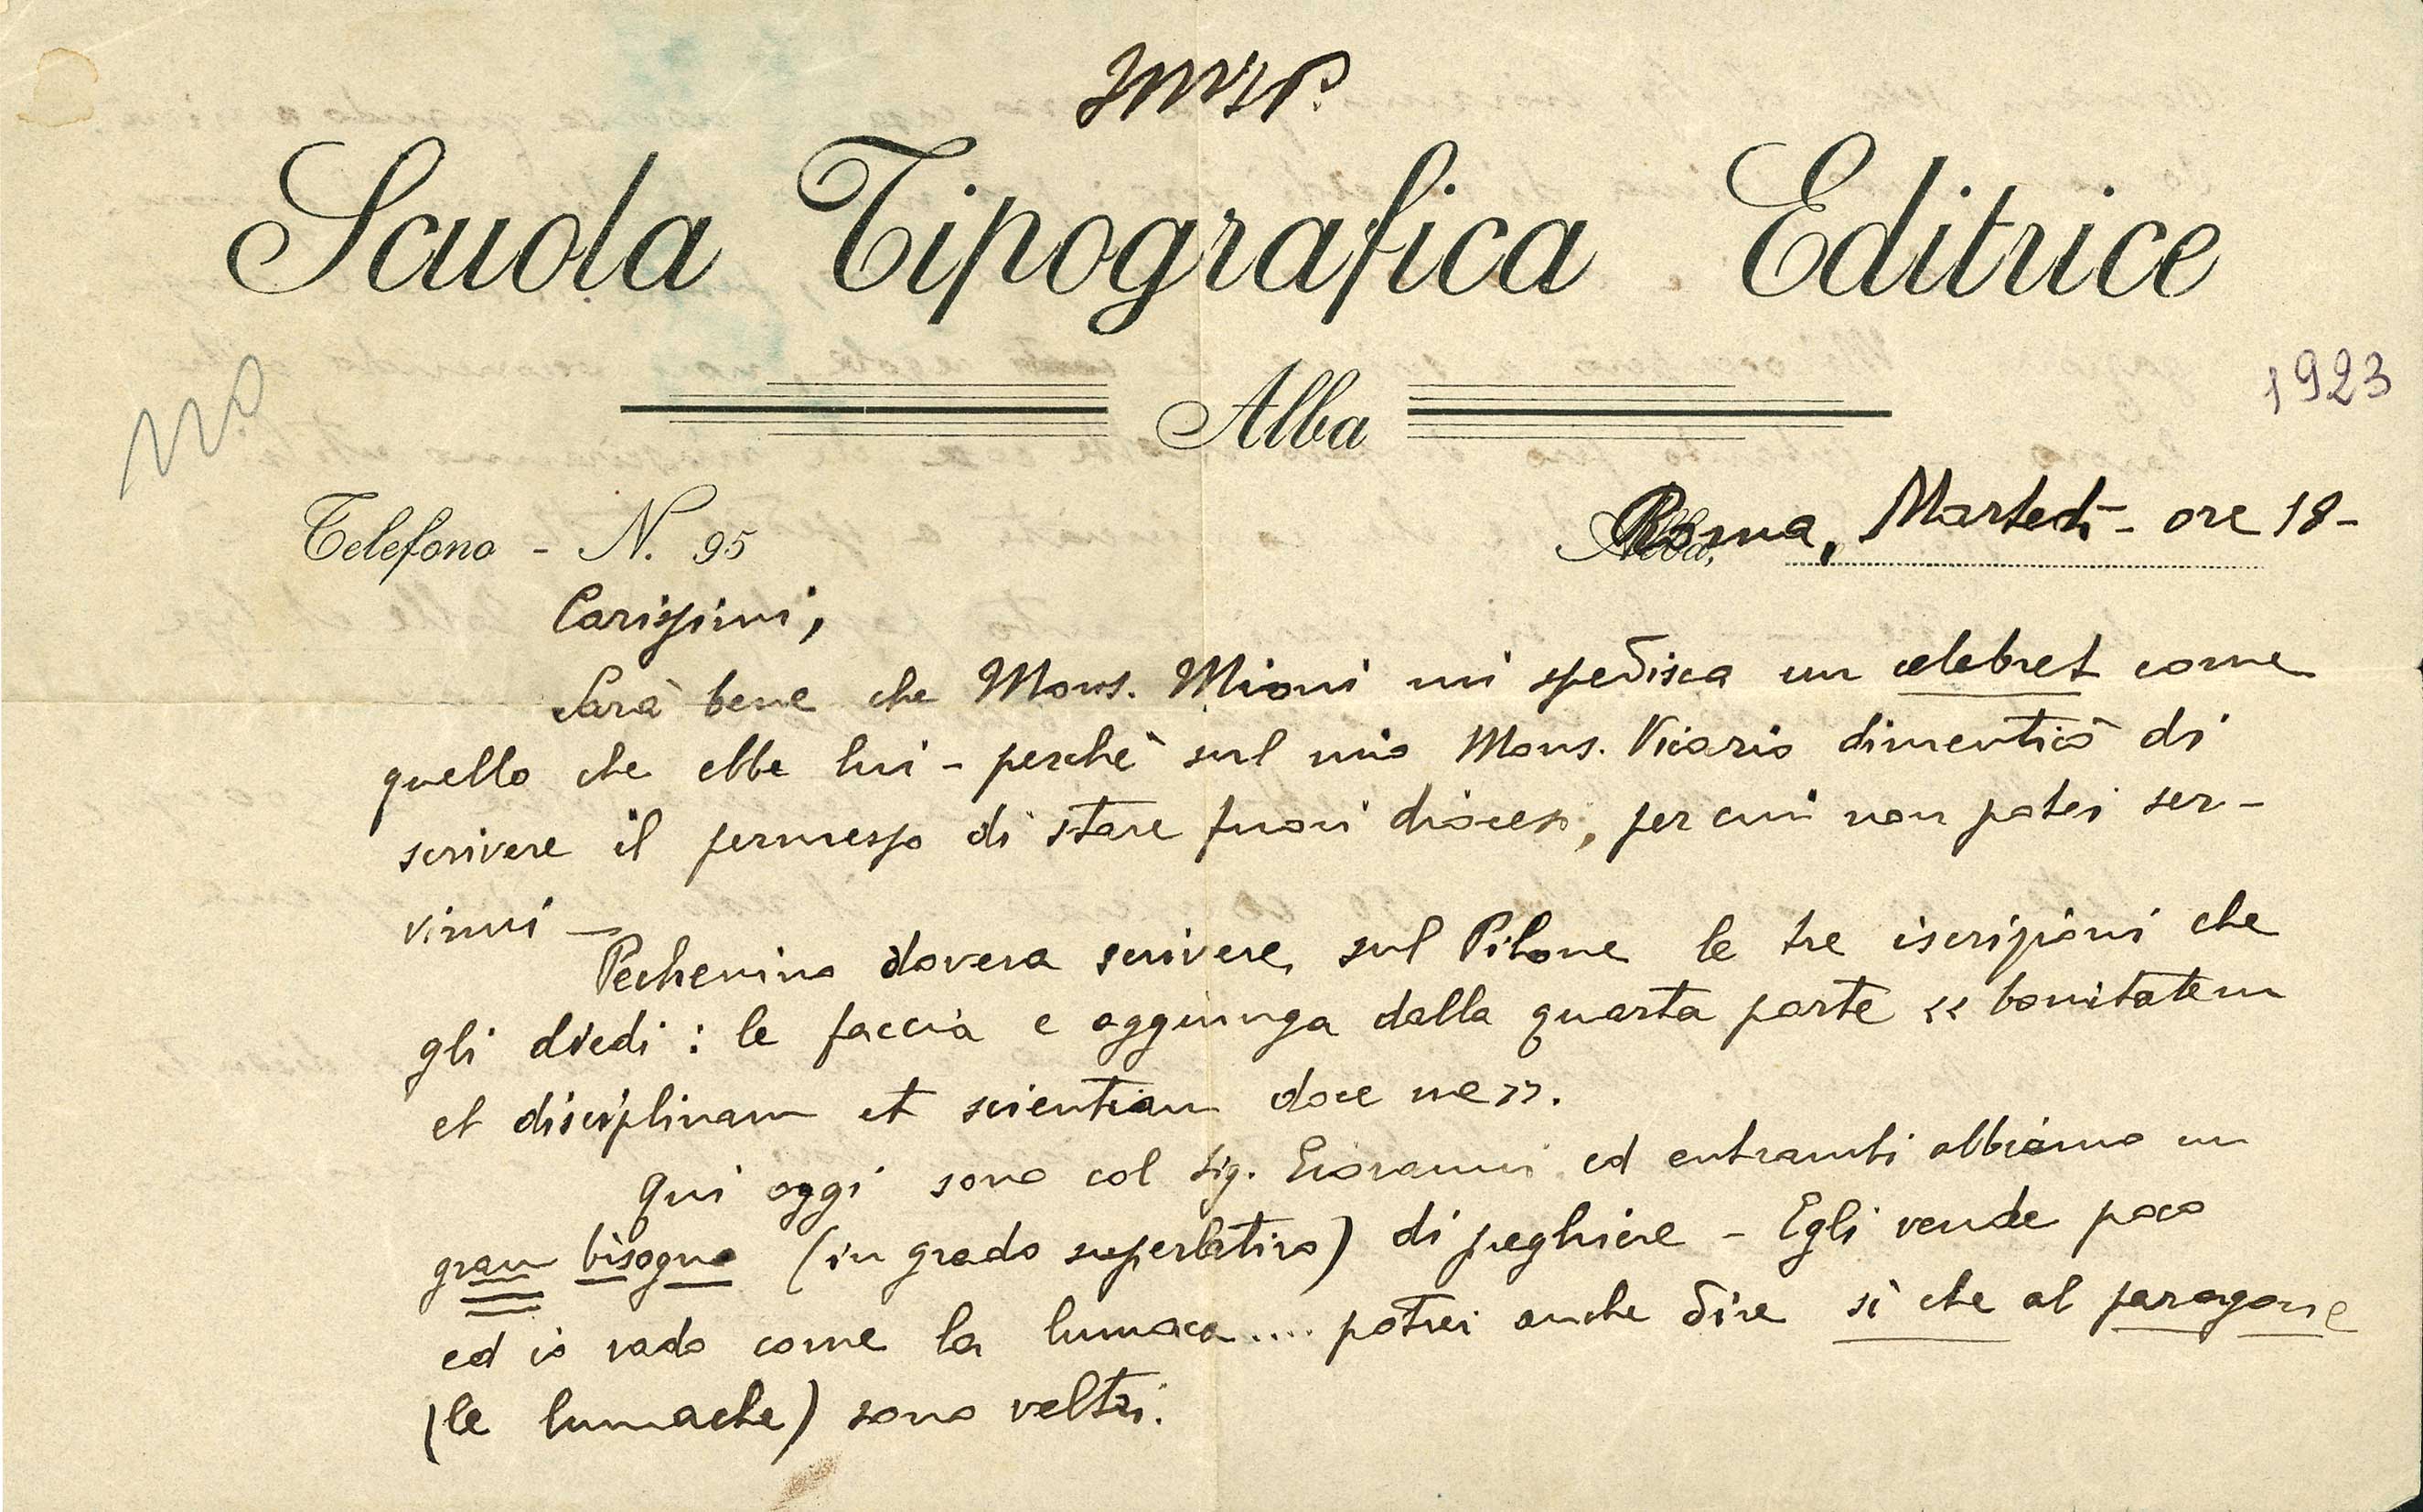 Scuola Tipografica Editrice
Alba
1923
Telefono - N. 95
Alba, Roma, Martedì - ore 18 -
Carissimi,
Sarà bene che Mons. Mioni mi spedisca un celebret come
quello che ebbe lui - perchè sul mio Mons. Vicario dimenticò di
scrivere il permesso di stare fuori diocesi, per cui non potei ser-
virmi -
Pechenino dovera scrivere sul Pilone le tre iscrizioni che
gli diedi : le faccia e aggiunga dalla quarta parte « bonitatem
et disciplinam et scientiam doce me ».
Qui oggi sono col Sig. Giovanni ed entrambi abbiamo un
gran bisogno (in grado superlativo) di preghiere - Egli vende poco
ed io vado come la lumaca .... potrei anche dire sì che al paragone
(le lumache) sono veltri.